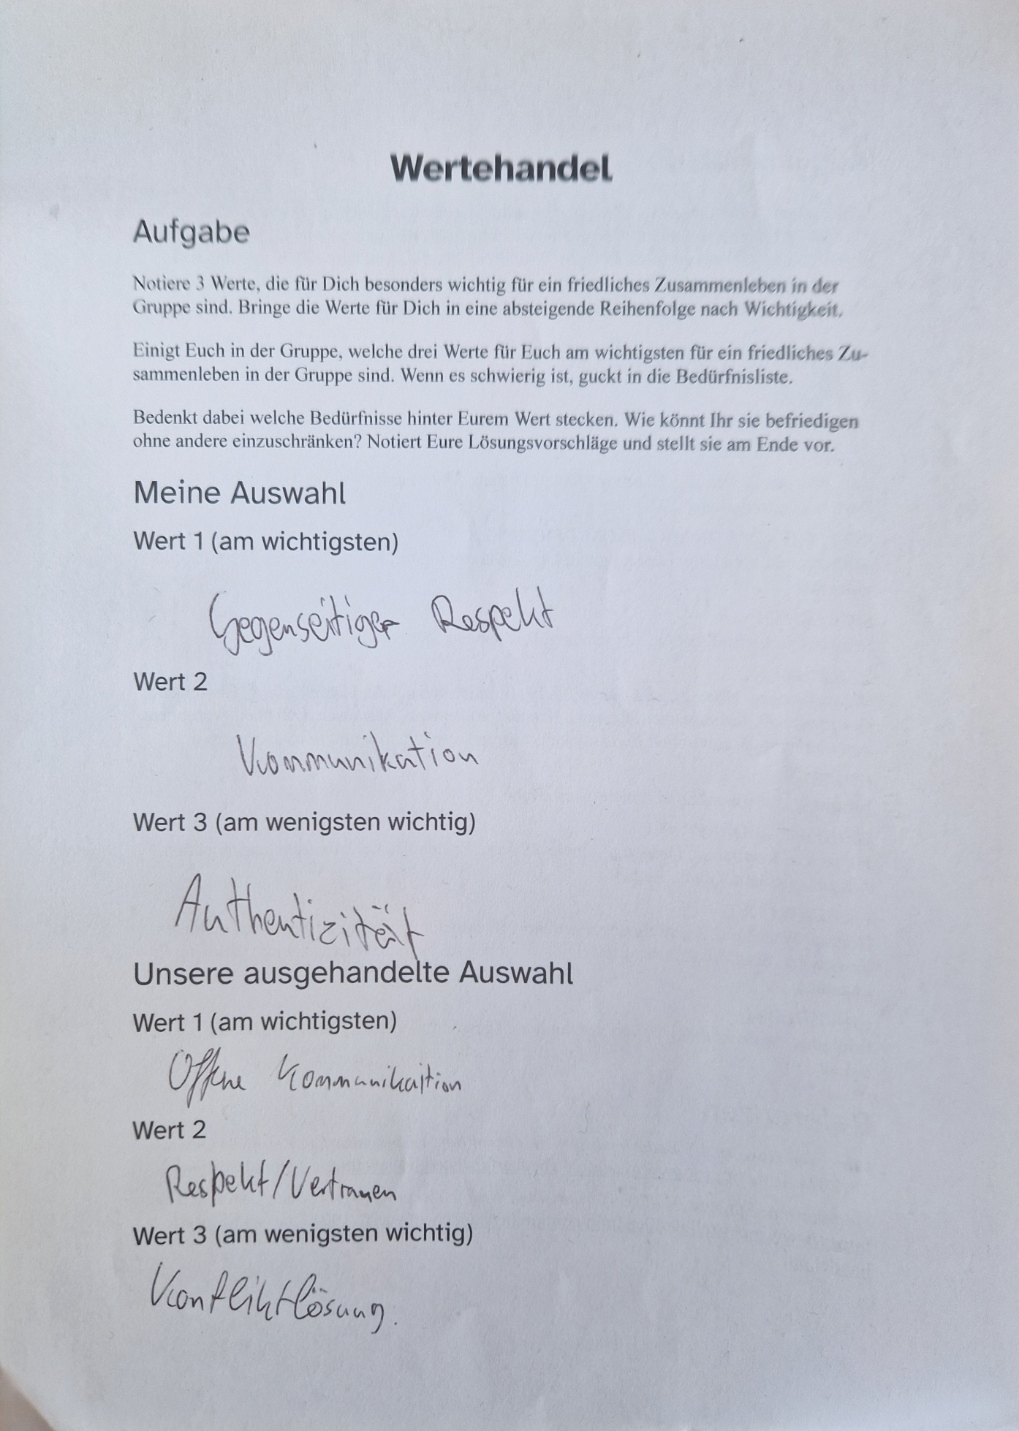 Wertehandel
Aufgabe
Notiere 3 Werte, die für Dich besonders wichtig für ein friedliches Zusammenleben in der
Gruppe sind. Bringe die Werte für Dich in eine absteigende Reihenfolge nach Wichtigkeit.
Einigt Euch in der Gruppe, welche drei Werte für Euch am wichtigsten für ein friedliches Zu-
sammenleben in der Gruppe sind. Wenn es schwierig ist, guckt in die Bedürfnisliste.
Bedenkt dabei welche Bedürfnisse hinter Eurem Wert stecken. Wie könnt Ihr sie befriedigen
ohne andere einzuschränken? Notiert Eure Lösungsvorschläge und stellt sie am Ende vor.
Meine Auswahl
Wert 1 (am wichtigsten)
Gegenseitiger Respekt
Wert 2
Kommunikation
Wert 3 (am wenigsten wichtig)
Authentizität
Unsere ausgehandelte Auswahl
Wert 1 (am wichtigsten)
Offene Kommunikation
Wert 2
Respekt/Vertrauen
Wert 3 (am wenigsten wichtig)
Konfliktlösung.